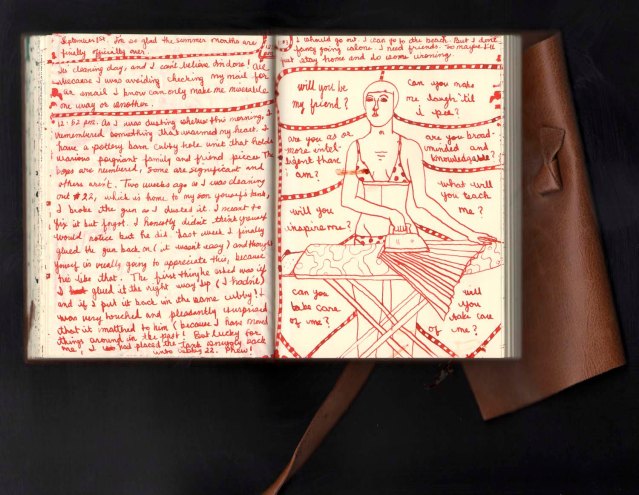 September 1st. I'm so glad the summer months are
finally officially over.
Its cleaning day, and I can't believe I'm done! All
because I was avoiding checking my mail for
an email I know can only make me miserable
one way or another.
12:52 pm. As I was dusting shelves this morning, I
remembered something that warmed my heart. I
have a pottery barn cubby hole unit that holds
various poignant family and friend pieces. The
boxes are numbered, some are significant and
others aren't. Two weeks ago as I was cleaning
out #22, which is home to my son yousef's tank,
I broke the gun as I dusted it. I meant to
fix it but forgot. I honestly didn't think yousef
would notice but he did. Last week I finally
glued the gun back on (it wasn't easy) and thought
yousef is really going to appreciate this, because
he's like that. The first thing he asked was if
I glued it the right way up (I hadn't)
and if I put it back in the same cubby! I
was very touched and pleasantly surprised
that it mattered to him (because I have moved
things around in the past! But lucky for
me, I had placed the tank snuggly back
into cubby 22. Phew!
I should go out. I can go to the beach. But I don't
fancy going alone. I need friends. So maybe I'll
just stay home and do some ironing.
will you be
my friend?
can you make
me laugh 'til
I pee?
are you as or
more intel-
ligent than I
am?
are you broad-
minded and
knowledgable?
will you
inspire me?
what will
you teach
me?
can you
take care
of me?
will
you
take care
of me?